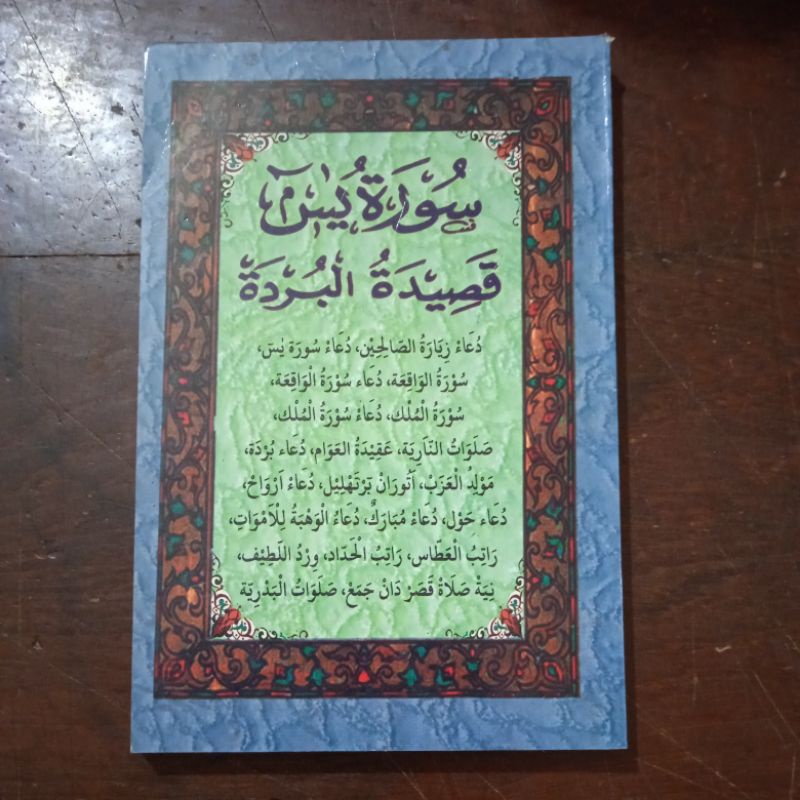 سُورَة يٰسٓ
قَصِيْدَةُ الْبُرْدَة
دُعَاءْ زِيَارَةُ الصَّالِحِيْن، دُعَاءْ سُورَة يٰسٓ،
سُوْرَةُ الوَاقِعَة، دُعَاء سُوْرَةُ الْوَاقِعَة،
سُوْرَةُ الْمُلْك، دُعَاءْ سُوْرَةُ الْمُلْك،
صَلَوَاتُ النَّارِيَة، عَقِيْدَةُ العَوَام، دُعَاء بُرْدَة،
مَوْلِدُ الْعَزَبْ، اَتُورَانْ بَرْتَهْلِيْل، دُعَاءْ اَرْوَاحْ،
دُعَاء حَوْل، دُعَاءْ مُبَارَكْ، دُعَاءُ الْوَهْبَةُ لِلْاَمْوَاتِ،
رَاتِبُ الْعَطَّاس، رَاتِبُ الْحَدَّاد، وِرْدُ اللَّطِيْف،
نِيَةْ صَلَاةْ قَصَرْ دَانْ جَمَعْ، صَلَوَاتُ الْبَدْرِيَّة